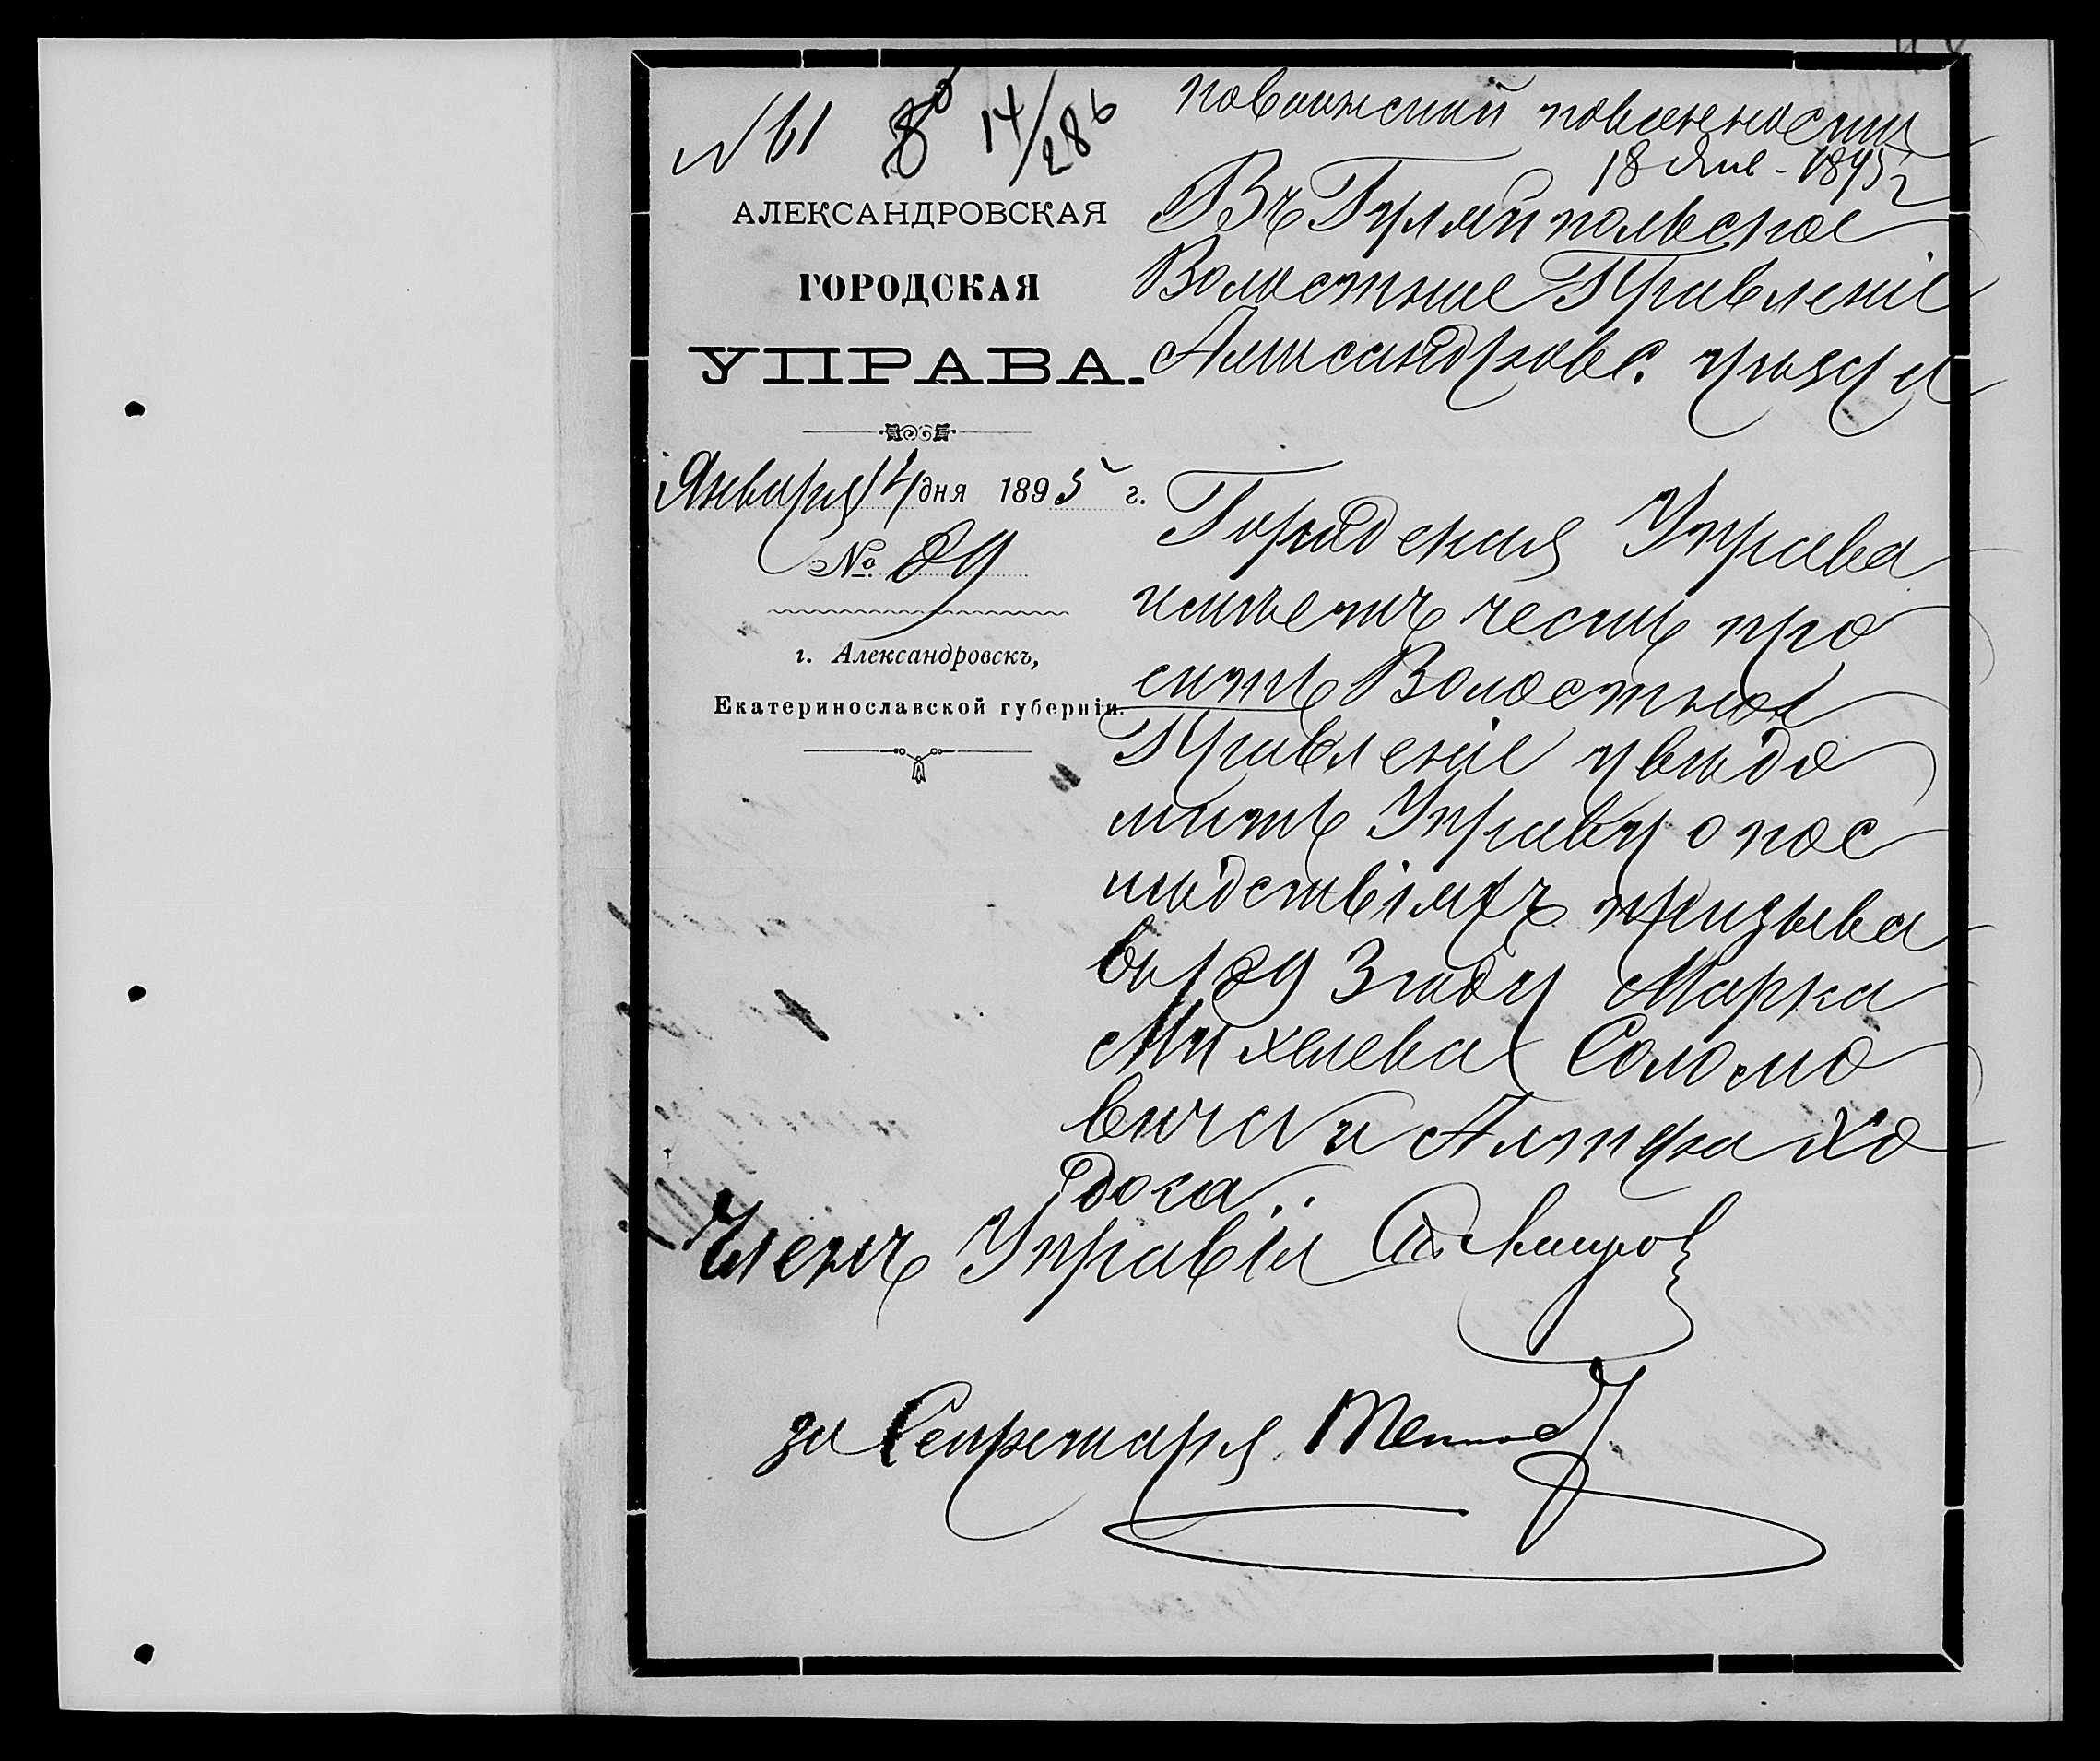 По воинской повинности
18 Янв. 1895 г
№ 61
14/286
АЛЕКСАНДРОВСКАЯ
ГОРОДСКАЯ
УПРАВА.
Января 14 дня 1895 г.
№ 89
г. Александровскъ,
Екатеринославской губерніи.
Въ Гуляйпольское
Волостное Правленіе
Александровс. уѣзда
Городская Управа
имѣетъ честь про
сить Волостное
Правленіе увѣдо
мить Управу о пос
лѣдствіяхъ призыва
въ 1893 году Марка
Михелева Соломо
вича и Алтера Хо
доса.
Членъ Управы
за Секретаря